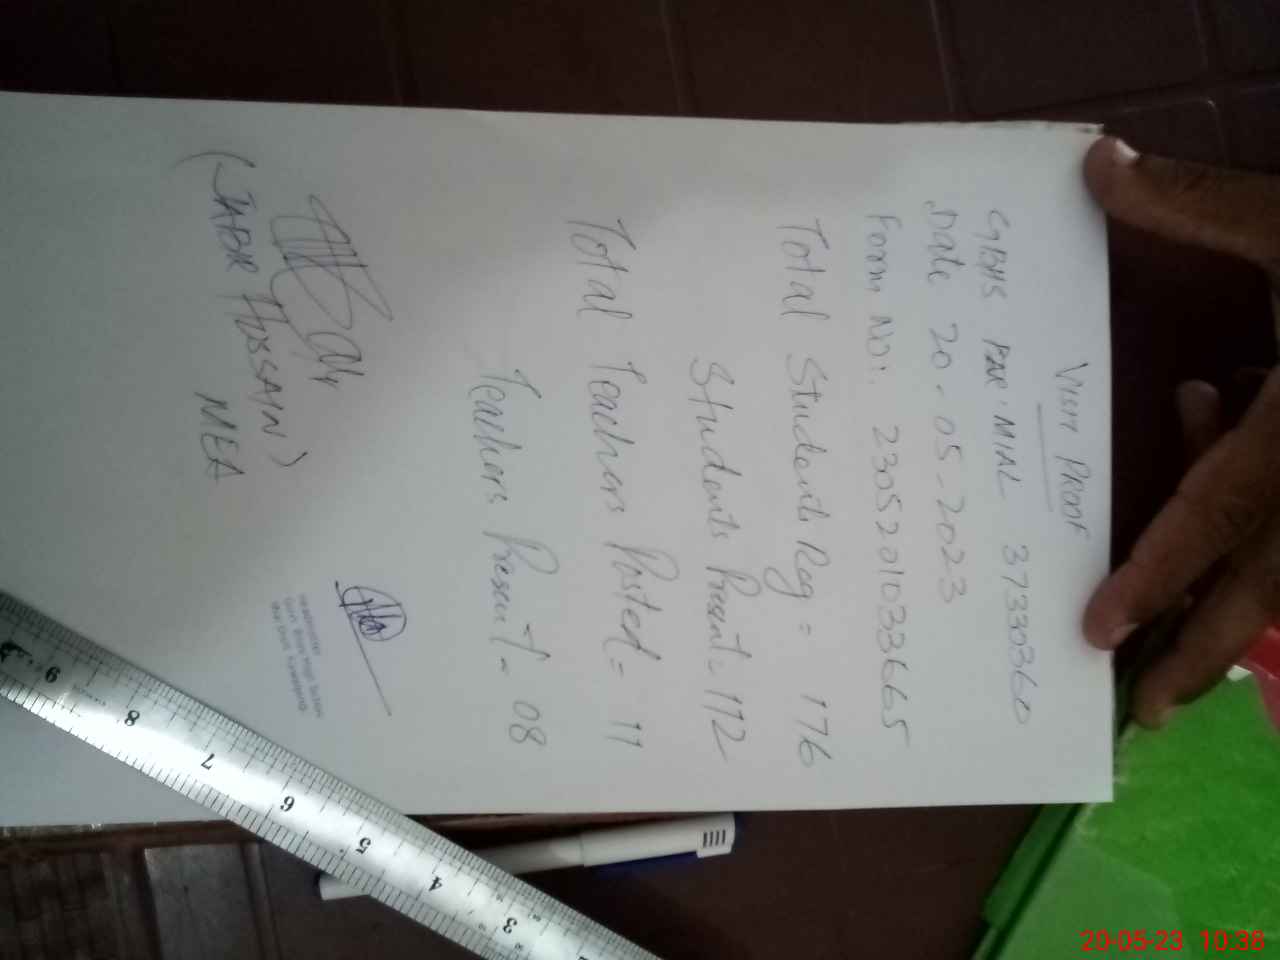 VISIT PROOF
GBHS MIAL 37330360
Date 20-05-2023
Form No: 2305201033665
Total Students Reg = 176
Students Present = 112
Total Teachers Posted = 11
Teachers Present - 08
(JABIR HUSSAIN)
MEA
Headmaster
Govt. Boys High School
9
8
7
6
5
4
3
20-05-23 10:38